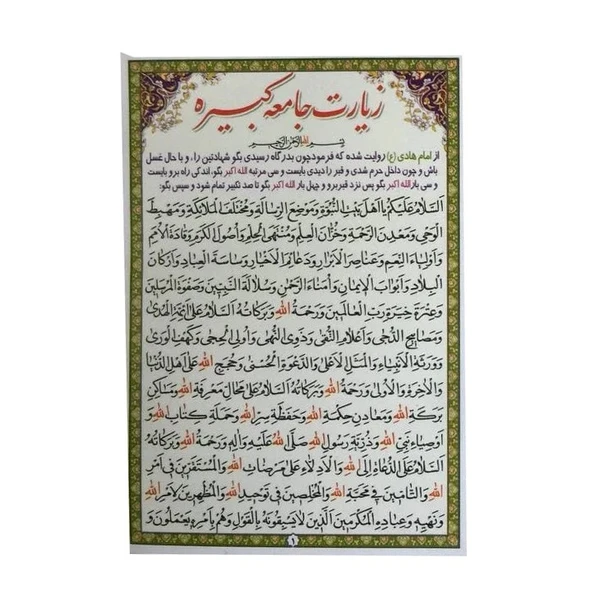 زیارت جامعه کبیره
بسم الله الرحمن الرحیم
از امام هادی (ع) روایت شده که فرمودچون بدرگاه رسیدی بگو شهادتین را، و با حال غسل
باش و چون داخل حرم شدی و قبر را دیدی بایست و سی مرتبه الله اکبر بگو، اندکی راه برو بایست
و سی بار الله اکبر بگو پس نزد قبر برو و چهل بار الله اکبر بگو تا صد تکبیر تمام شود و سپس بگو:
اَلسَّلامُ عَلَیْکُمْ یا اَهْلَ بَیْتِ النُّبُوَّةِ وَ مَوْضِعَ الرِّسالَةِ وَ مُخْتَلَفَ الْمَلائِکَةِ وَ مَهْبِطَ
الْوَحْیِ وَ مَعْدِنَ الرَّحْمَةِ وَ خُزّانَ الْعِلْمِ وَ مُنْتَهَی الْحِلْمِ وَ اُصُولَ الْکَرَمِ وَ قادَةَ الْاُمَمِ
وَ اَوْلِیاءَ النِّعَمِ وَ عَناصِرَ الْاَبْرارِ وَ دَعائِمَ الْاَخْیارِ وَ ساسَةَ الْعِبادِ وَ اَرْکانَ
الْبِلادِ وَ اَبْوابَ الْایمانِ وَ اُمَناءَ الرَّحْمنِ وَ سُلالَةَ النَّبِیّینَ وَ صَفْوَةَ الْمُرْسَلینَ
وَ عِتْرَةَ خِیَرَةِ رَبِّ الْعالَمینَ وَ رَحْمَةُ اللهِ وَ بَرَکاتُهُ اَلسَّلامُ عَلی اَئِمَّةِ الْهُدی
وَ مَصابیحِ الدُّجی وَ اَعْلامِ التُّقی وَ ذَوِی النُّهی وَ اُولِی الْحِجی وَ کَهْفِ الْوَری
وَ وَرَثَةِ الْاَنْبِیاءِ وَ الْمَثَلِ الْاَعْلی وَ الدَّعْوَةِ الْحُسْنی وَ حُجَجِ اللهِ عَلی اَهْلِ الدُّنْیا
وَ الْاخِرَةِ وَ الْاُولی وَ رَحْمَةُ اللهِ وَ بَرَکاتُهُ اَلسَّلامُ عَلی مَحالِّ مَعْرِفَةِ اللهِ وَ مَساکِنِ
بَرَکَةِ اللهِ وَ مَعادِنِ حِکْمَةِ اللهِ وَ حَفَظَةِ سِرِّ اللهِ وَ حَمَلَةِ کِتابِ اللهِ وَ
اَوْصِیاءِ نَبِیِّ اللهِ وَ ذُرِّیَّةِ رَسُولِ اللهِ صَلَّی اللهُ عَلَیْهِ وَ الِهِ وَ رَحْمَةُ اللهِ وَ بَرَکاتُهُ
اَلسَّلامُ عَلَی الدُّعاةِ اِلَی اللهِ وَ الْاَدِلّاءِ عَلی مَرْضاتِ اللهِ وَ الْمُسْتَقِرّینَ فی اَمْرِ
اللهِ وَ التّامّینَ فی مَحَبَّةِ اللهِ وَ الْمُخْلِصینَ فی تَوْحیدِ اللهِ وَ الْمُظْهِرینَ لِاَمْرِ اللهِ
وَ نَهْیِهِ وَ عِبادِهِ الْمُکْرَمینَ الَّذینَ لا یَسْبِقُونَهُ بِالْقَوْلِ وَ هُمْ بِاَمْرِهِ یَعْمَلُونَ وَ
۱